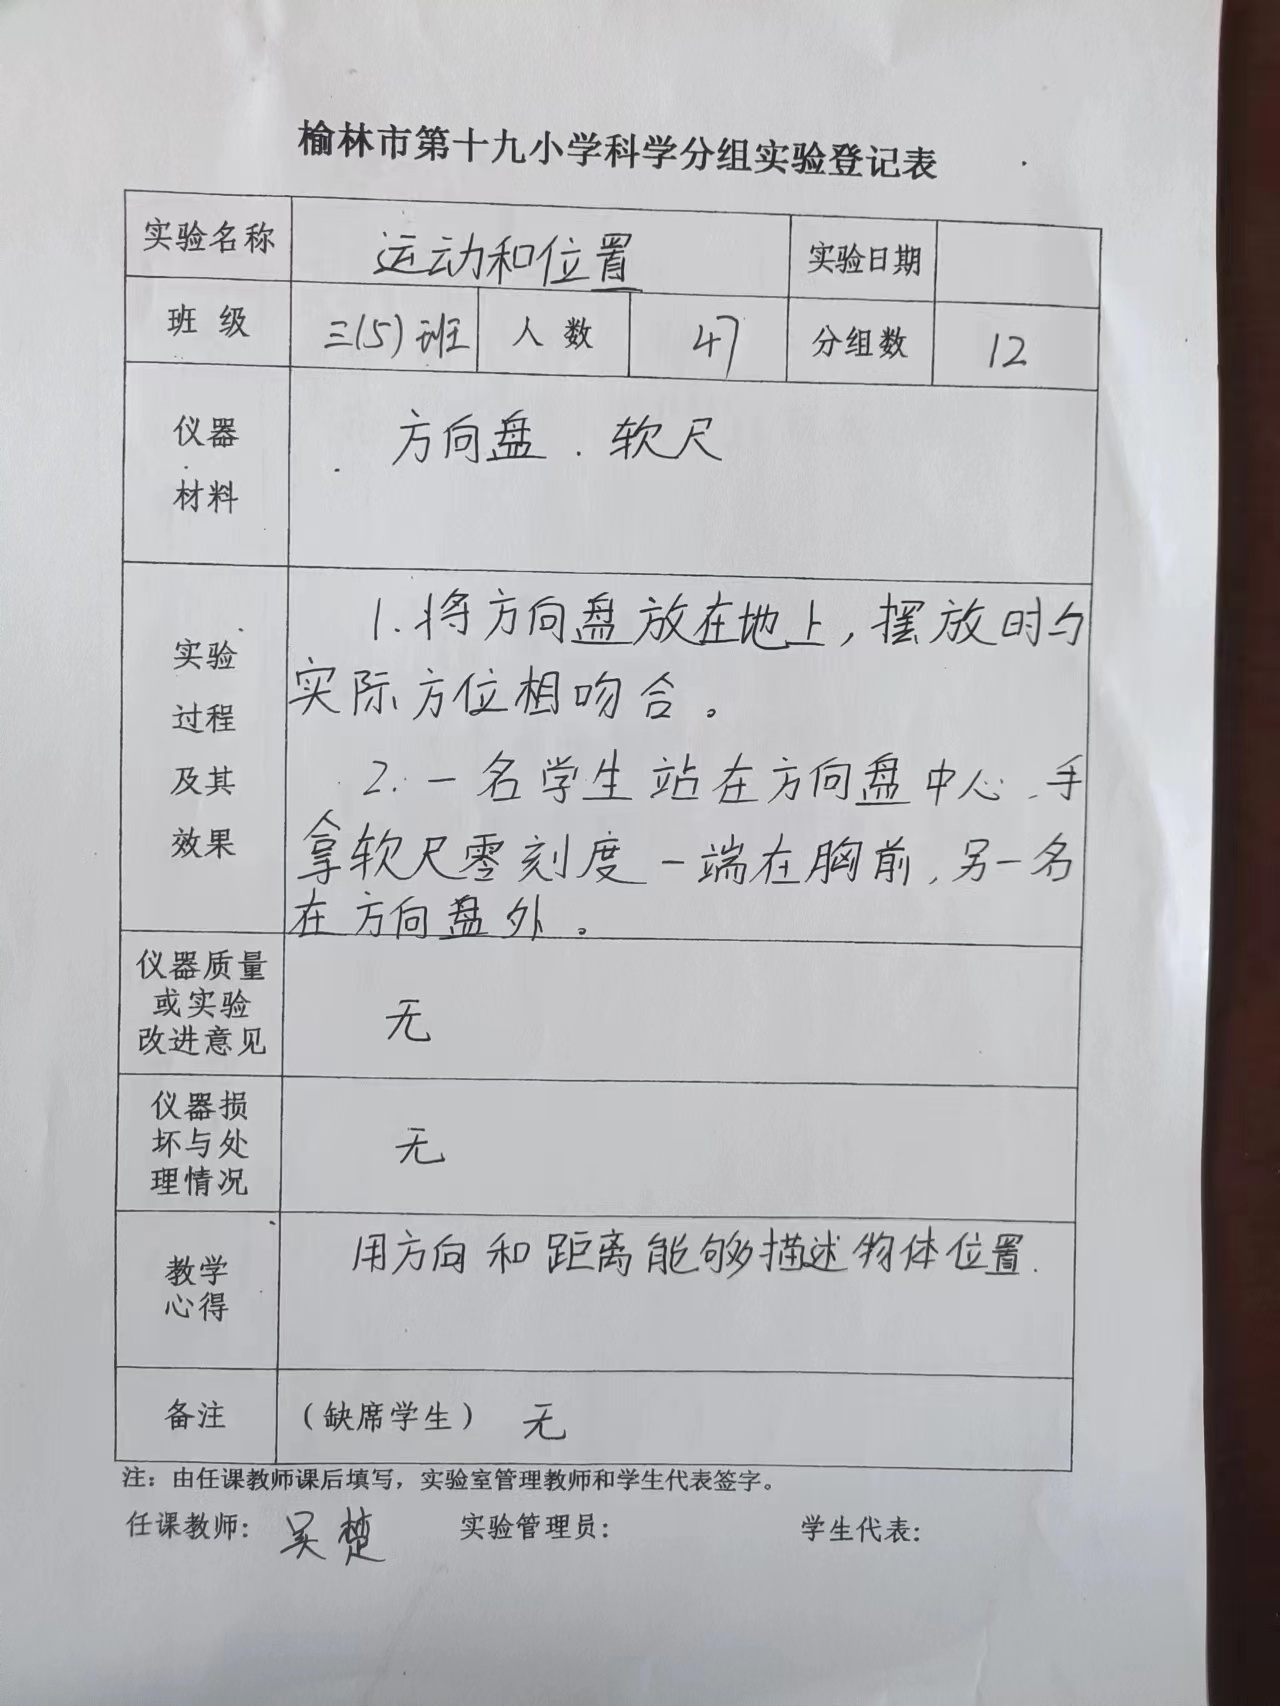 榆林市第十九小学科学分组实验登记表
实验名称 运动和位置 实验日期
班 级 三(5)班 人 数 47 分组数 12
仪器
材料
方向盘 . 软尺
实验
过程
及其
效果
1. 将方向盘放在地上，摆放时与
实际方位相吻合。
2. 一名学生站在方向盘中心，手
拿软尺零刻度一端在胸前，另一名
在方向盘外。
仪器质量
或实验
改进意见
无
仪器损
坏与处
理情况
无
教学
心得
用方向和距离能够描述物体位置.
备注 （缺席学生） 无
注：由任课教师课后填写，实验室管理教师和学生代表签字。
任课教师: 吴楚 实验管理员: 学生代表: